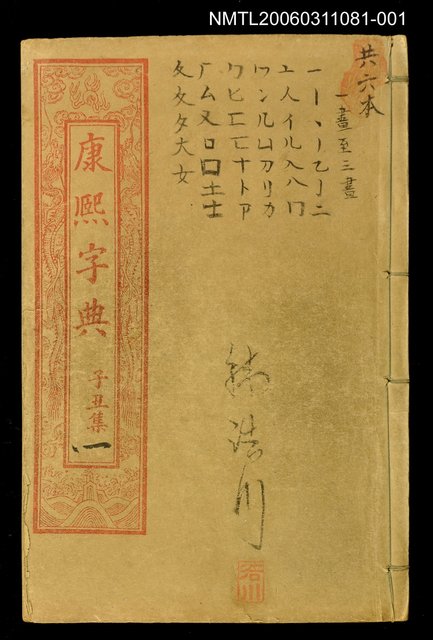 NMTL20060311081-001
共六本
一畫至三畫
一丨丶丿乙亅二
亠人亻儿入八冂
冖冫几凵刀刂力
勹匕匚匸十卜卩
厂厶又口囗土士
夂夊夕大女
康熙字典
子丑集
一
浩川